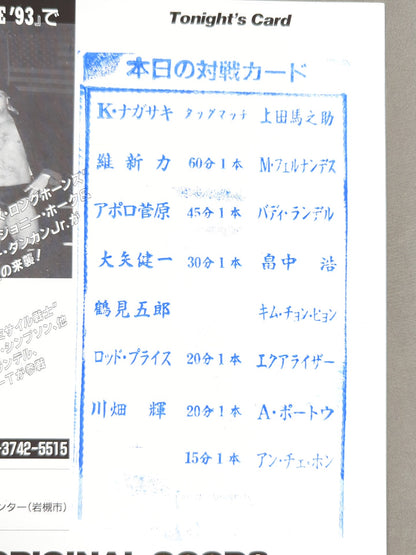 Tonight's Card
本日の対戦カード
K・ナガサキ タッグマッチ 上田馬之助
維新力 60分1本 M・フェルナンデス
アポロ菅原 45分1本 バディ・ランデル
大矢健一 30分1本 畠中 浩
鶴見五郎 キム・チョン・ピョン
ロッド・プライス 20分1本 エクアライザー
川畑 輝 20分1本 A・ポートウ
15分1本 アン・チェ・ホン
'93』で
ス・ロングホーンズ
ジョニー・ホーク
・ダンカンJr.が
の来襲!
ミサイル戦士"
・シンプソン、他
ランデル、
-Tが参戦
-3742-5515
ンター(岩槻市)
ORIGINAL GOODS